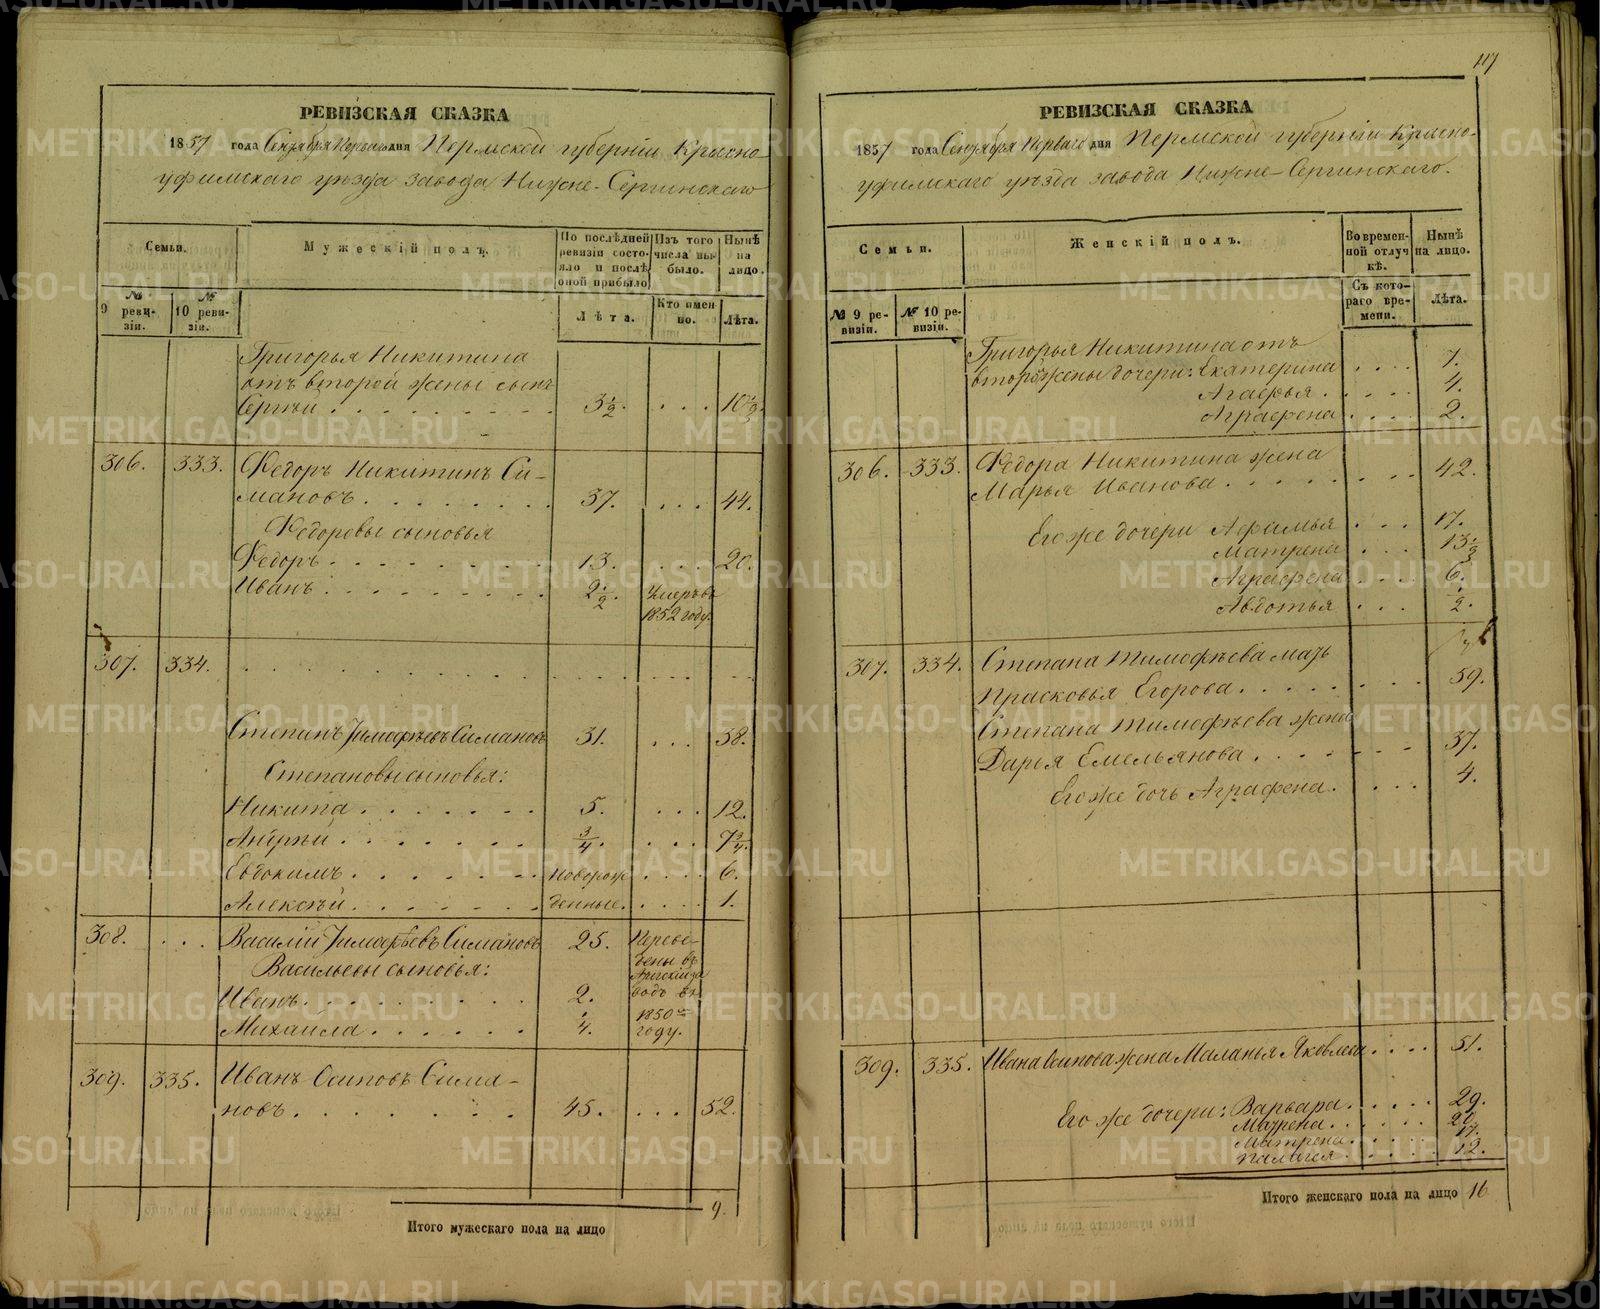 РЕВИЗСКАЯ СКАЗКА
1857 года Сентября Перваго дня Пермской губерніи Красно-
уфимскаго уѣзда завода Нижне-Сергинскаго
Семьи.
Мужескій полъ.
По послѣдней ревизіи состояло и послѣ оной прибыло
Изъ того числа выбыло.
Нынѣ на лицо.
№ 9 ревизіи.
№ 10 ревизіи.
Лѣта.
Кто именно.
Лѣта.
Григорья Никитина
отъ второй жены сынъ
Сергѣй 3½. 10½.
306. 333. Ѳедоръ Никитинъ Си-
мановъ 37. 44.
Ѳедоровы сыновья
Ѳедоръ 13. 20.
Иванъ 2½. Умеръ въ
1852 году.
307. 334.
Степанъ Тимофѣевъ Симановъ 31. 38.
Степановы сыновья:
Никита 5. 12.
Андрѣй ¾. 7¾.
Евдокимъ новорож 6.
Алексѣй денные. 1.
308. Василій Тимофѣевъ Симановъ 25. Переве-
Васильевы сыновья: дены въ
Иванъ 2. водъ въ
1850 м
Михаила ¼. году.
309. 335. Иванъ Осиповъ Сима-
новъ 45. 52.
9.
Итого мужескаго пола на лицо
117
РЕВИЗСКАЯ СКАЗКА
1857 года Сентября Перваго дня Пермской губерніи Красно-
уфимскаго уѣзда завода Нижне-Сергинскаго.
Семьи.
Женскій полъ.
Во временной отлучкѣ.
Нынѣ на лицо.
№ 9 ревизіи.
№ 10 ревизіи.
Съ котораго времени.
Лѣта.
Григорья Никитина отъ
второй жены дочери: Екатерина 7.
Агафья 4.
Аграфена 2.
306. 333. Ѳедора Никитина жена
Марья Иванова 42.
Его же дочери Афимья 17.
Матрена 13½
Аграфена 6.
Авдотья ½.
307. 334. Степана Тимофѣева мать
Прасковья Егорова 59.
Степана Тимофѣева жена
Дарья Емельянова 37.
Его же дочь Аграфена 4.
309. 335. Ивана Осипова жена Маланья Яковлева 51.
Его же дочери: Варвара 29.
20.
Матрена 17.
Палагея 12.
Итого женскаго пола на лицо 16
METRIKI.GASO-URAL.RU